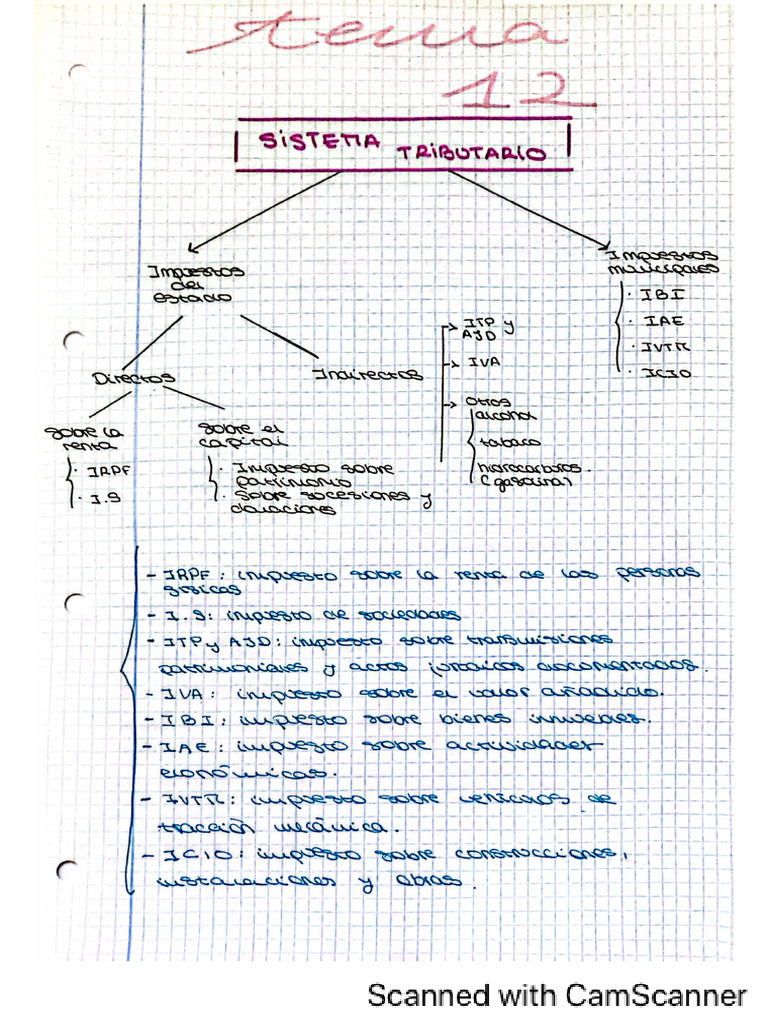 tema
12
SiSTEMA TRiBUTARiO
Impuestos
del
estado
Impuestos
municipales
· IBI
· IAE
· IVTM
· ICIO
Directos
Indirectos
ITP y
AJD
IVA
Otros
alcohol
tabaco
hidrocarburos.
(gasolina)
Sobre la
renta
· IRPF
· I.S
Sobre el
capital
· Impuesto sobre
patrimonio
· Sobre sucesiones y
donaciones
- IRPF: impuesto sobre la renta de las personas
físicas
- I.S: impuesto de sociedades
- ITP y AJD: impuesto sobre transmisiones
patrimoniales y actos jurídicos documentados.
- IVA: impuesto sobre el valor añadido.
- IBI: impuesto sobre bienes inmuebles.
- IAE: impuesto sobre actividades
económicas.
- IVTM: impuesto sobre vehículos de
tracción mecánica.
- ICIO: impuesto sobre construcciones,
instalaciones y obras.
Scanned with CamScanner